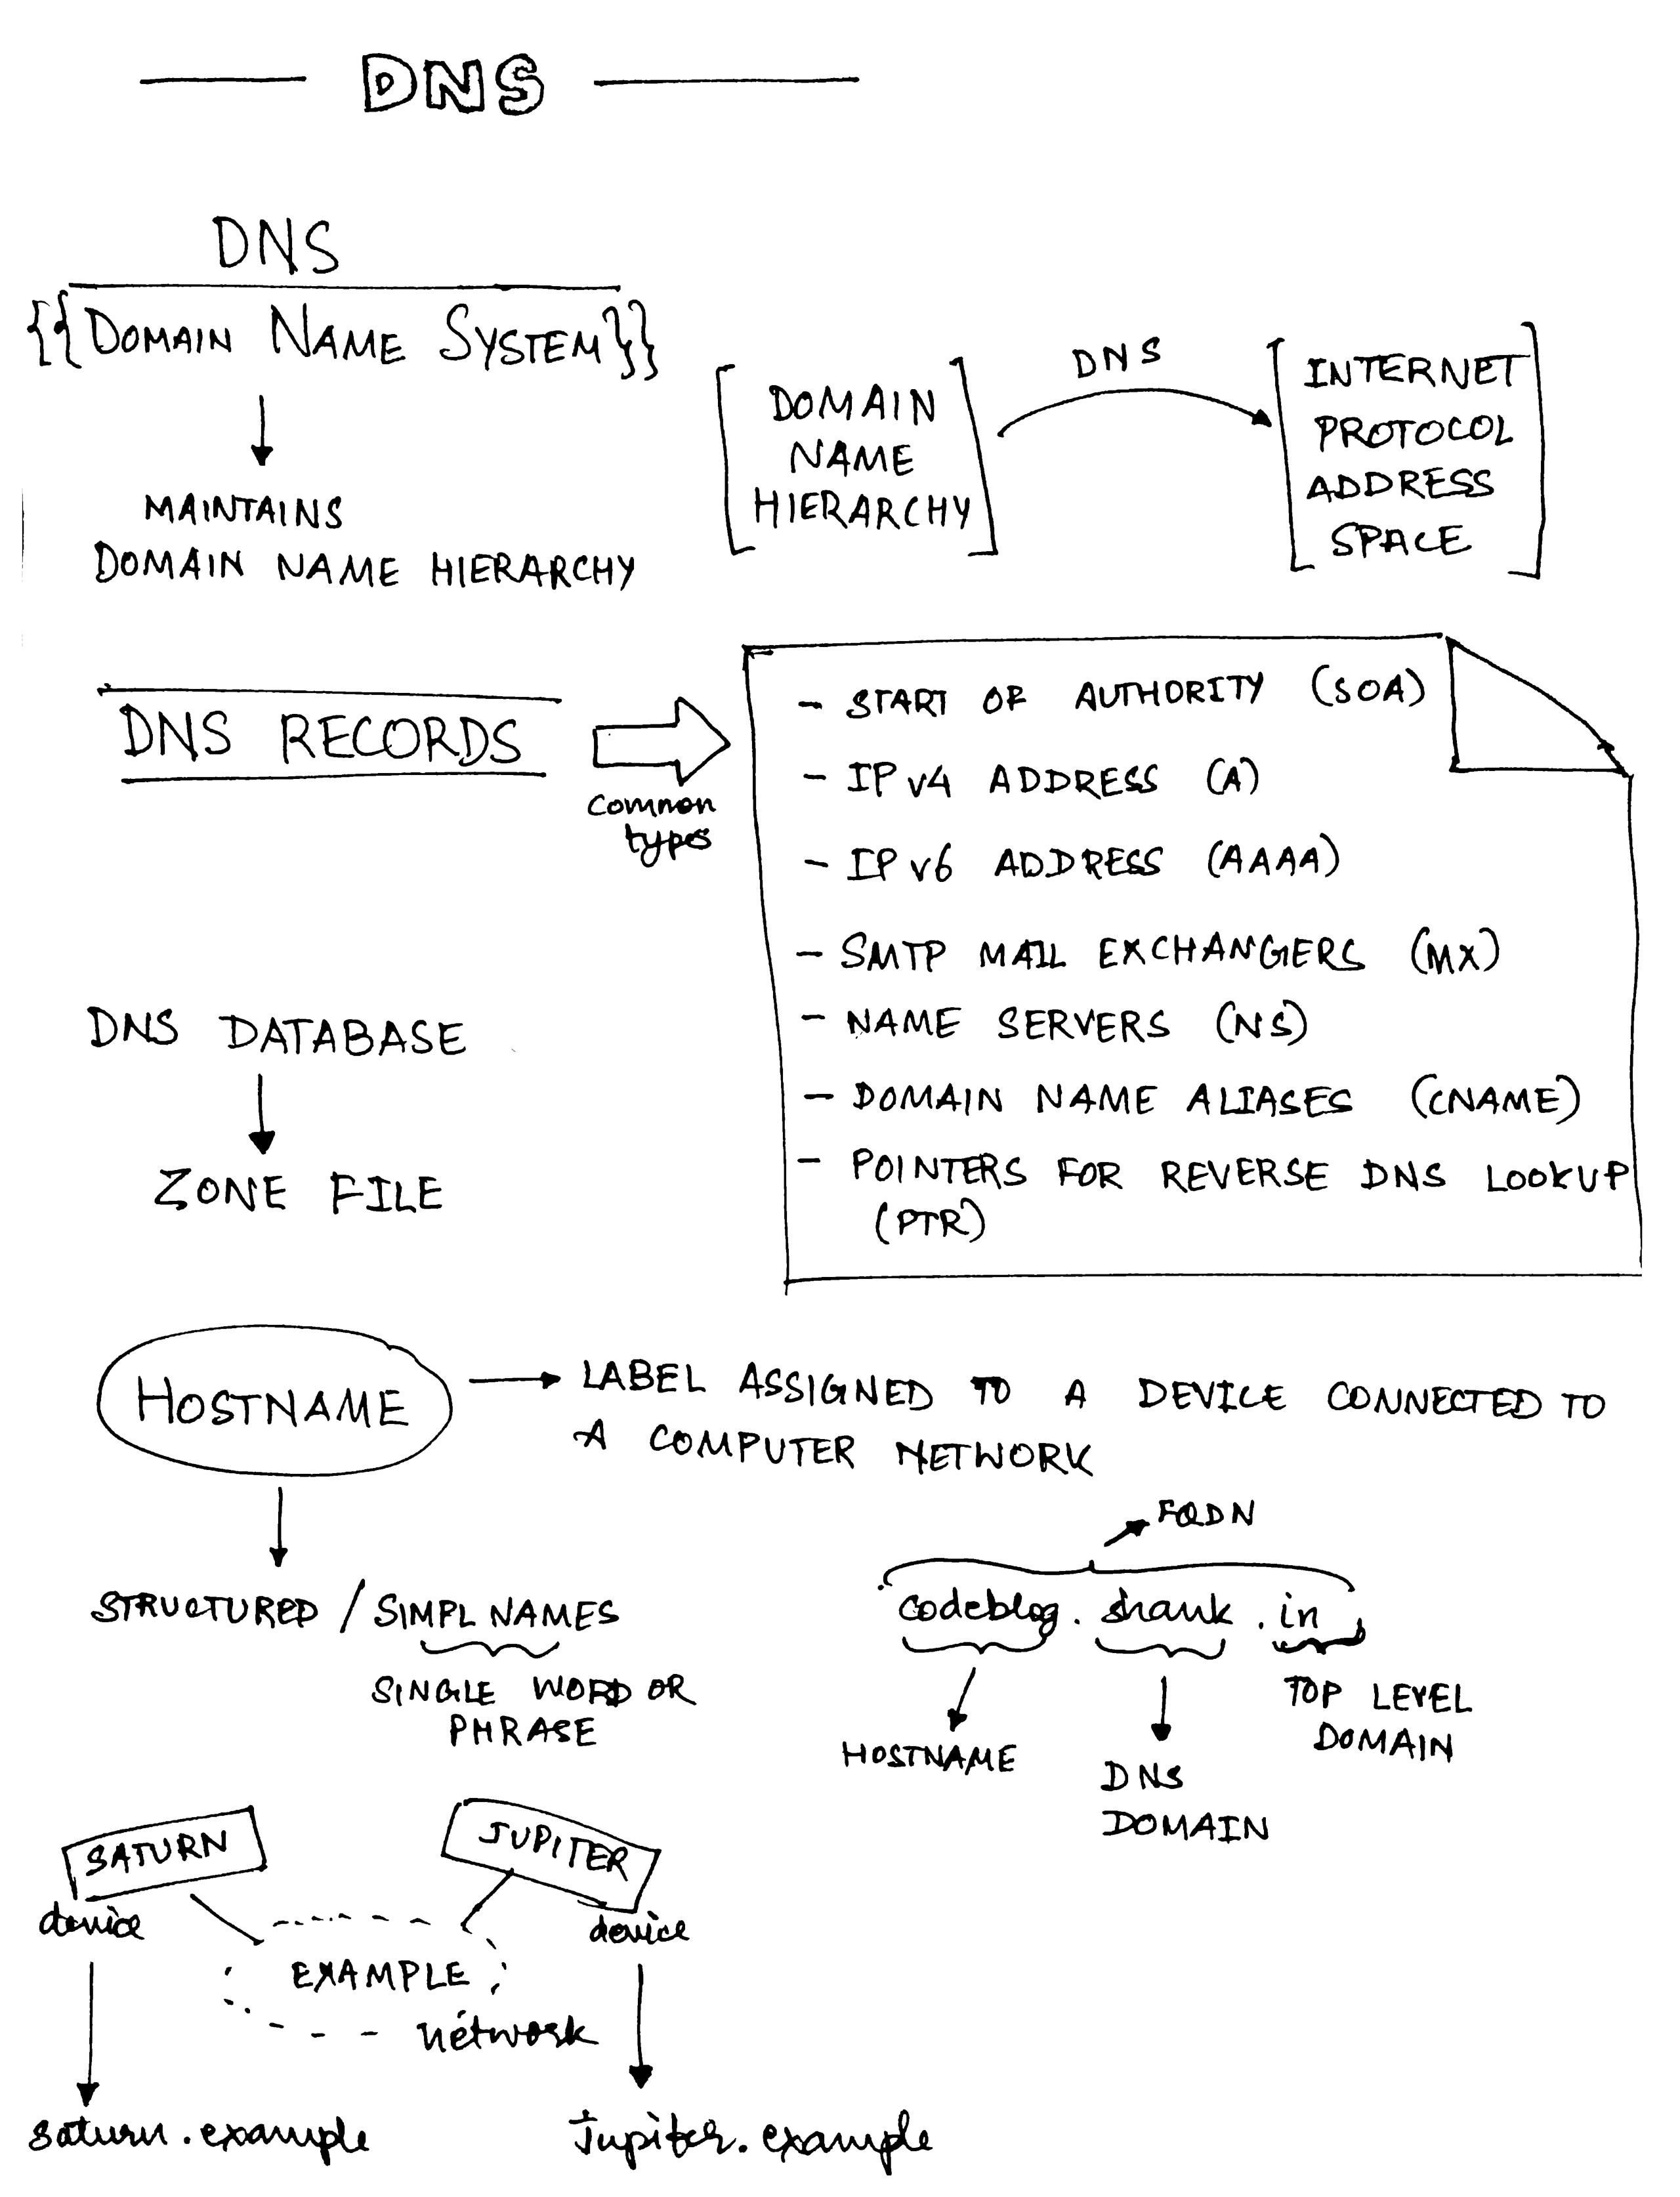 DNS
DNS
{{DOMAIN NAME SYSTEM}}
MAINTAINS
DOMAIN NAME HIERARCHY
DOMAIN
NAME
HIERARCHY
DNS
INTERNET
PROTOCOL
ADDRESS
SPACE
DNS RECORDS
common
types
- START OF AUTHORITY (SOA)
- IPv4 ADDRESS (A)
- IPv6 ADDRESS (AAAA)
- SMTP MAIL EXCHANGERS (MX)
- NAME SERVERS (NS)
- DOMAIN NAME ALIASES (CNAME)
- POINTERS FOR REVERSE DNS LOOKUP
(PTR)
DNS DATABASE
ZONE FILE
HOSTNAME
LABEL ASSIGNED TO A DEVICE CONNECTED TO
A COMPUTER NETWORK
STRUCTURED / SIMPL NAMES
SINGLE WORD OR
PHRASE
FQDN
codeblog.shank.in
HOSTNAME
DNS
DOMAIN
TOP LEVEL
DOMAIN
SATURN
device
JUPITER
device
EXAMPLE
network
saturn.example
Jupiter.example